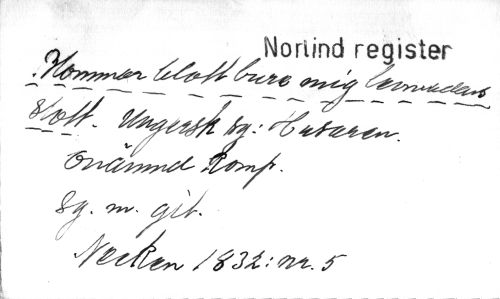 Norlind register
Kommer blott bure mig
Slott. Ungersk sg: Husaren.
Onämnd Komp.
Sg. m. git.
Necken 1832: nr. 5